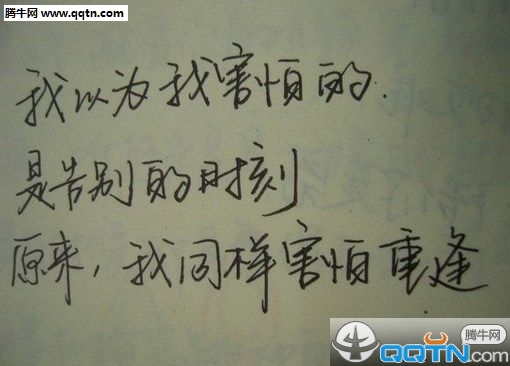 腾牛网
www.qqtn.com
我以为我害怕的.
是告别的时刻
原来,我同样害怕重逢
腾牛网
QQTN.com